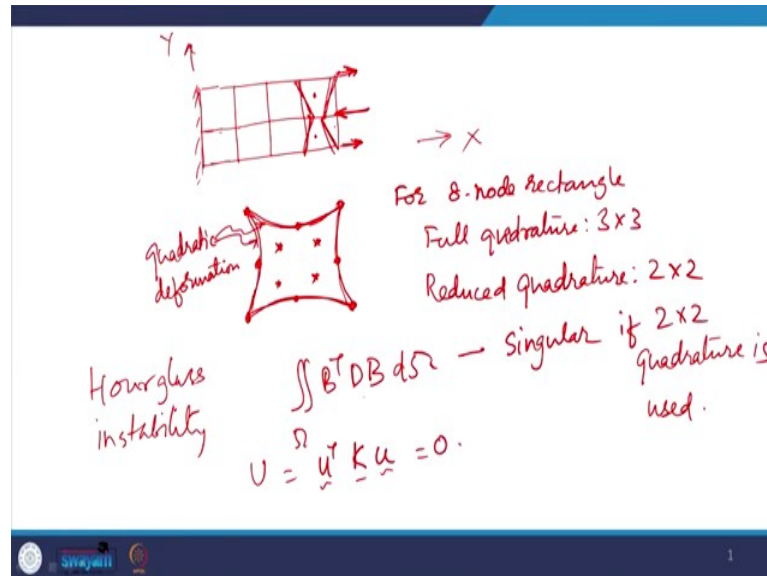 Y
→ X
For 8-node rectangle
Full quadrature: 3x3
Reduced quadrature: 2x2
quadratic
deformation
Hourglass
instability
∬ BᵀDB dΩ — Singular if 2x2
Ω
quadrature is
used.
U = uᵀ K u = 0.
swayam
1